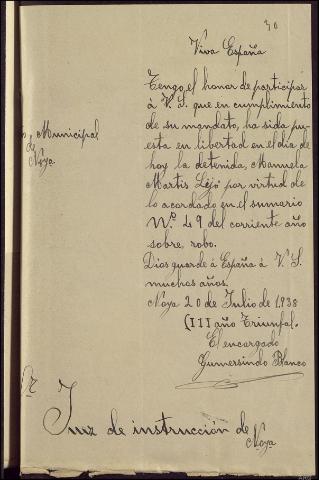 30
Viva España
Tengo el honor de participar
á V. S. que en cumplimiento
de su mandato, ha sida pu-
esta en libertad en el dia de
hoy la detenida, Manuela
Martis Lejó por virtud de
lo acordado en el sumario
Nº 49 del corriente año
sobre, robo.
Dios guarde á España á V. S.
muchos años.
Noya 20 de Julio de 1.938
(III año Triunfal.
El encargado
Gumersindo Blanco
Municipal
de
Noya
Juez de instrucción de
Noya